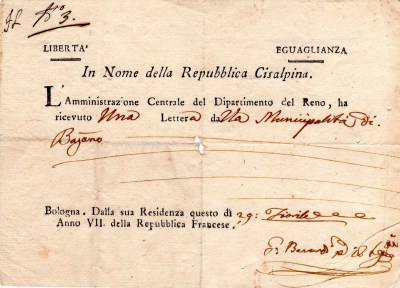 N.º 3.
LIBERTA' EGUAGLIANZA
In Nome della Repubblica Cisalpina.
L'Amministrazione Centrale del Dipartimento del Reno, ha
ricevuto Una Lettera da lla Municipalità di
Bajano
Bologna. Dalla sua Residenza questo dì 29: Fiorile
Anno VII. della Repubblica Francese.